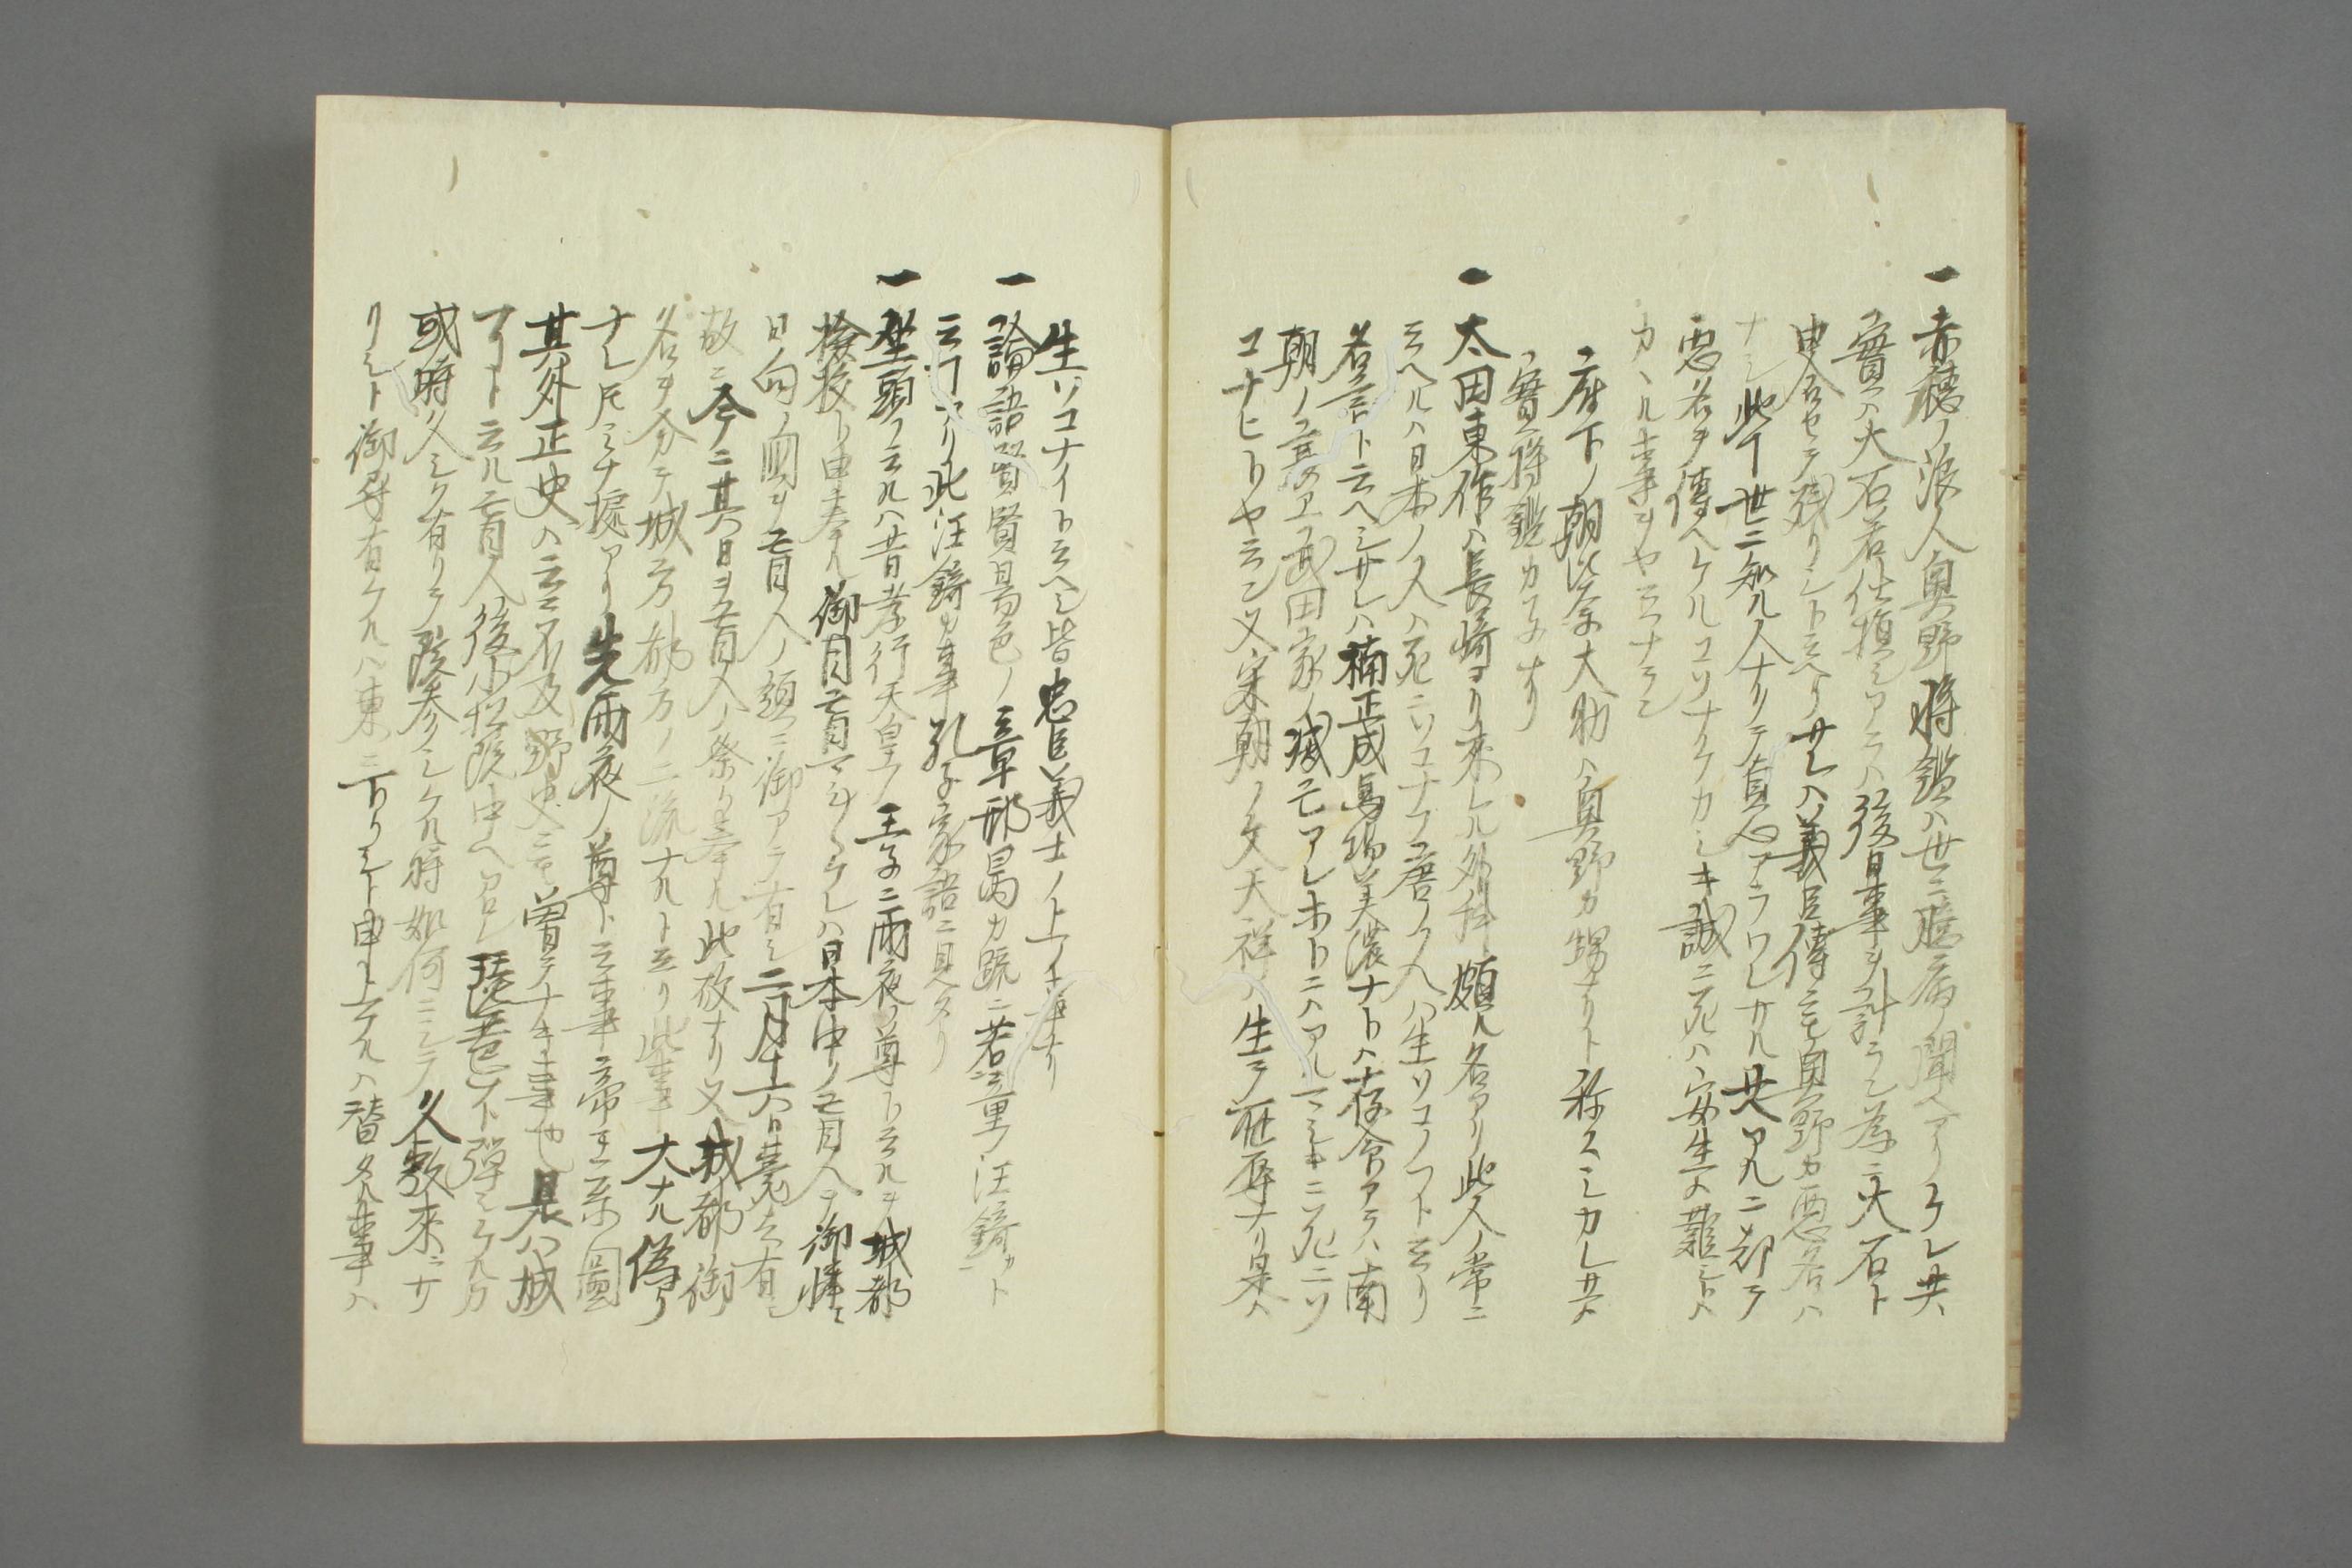 一 赤穂ノ浪人奥野将鑑ハ世ニ臆病ノ聞ヘアリケレ共
實ハ大石若仕損シアラハ後日事ヲ計ラン為ニ大石ト
申合セテ残リシト云ヘリ サレハ義臣傳ニモ奥野カ悪名ハ
ナシ此ヿ世ニ知ル人ナリテ直心アラワレサル 共アルニ却テ
悪名ヲ傳ヘケルコソナケカシキ誠ニ死ハ安生ハ難シトハ
カヽル事ヲヤ云ナラン
麾下ノ朝比奈大助ハ奥野カ甥ナリト称スシカレ共
實ハ将鑑カ子ナリ
一 太田東作ハ長崎ヨリ来レル外科頗ル名アリ此人ノ常ニ
云ヘルハ日本ノ人ハ死ニソコナフ唐ノ人ハ生ソコノフト云リ
名言ト云ヘシサレハ楠正成馬場美濃ナトハ存命アラハ南
朝ノ衰ヘ武田家ノ滅亡アレホトニハアルマシキニ死ニソ
コナヒトヤ云ン又宋朝ノ文天祥ハ生テ耻辱ナリ是ハ
生ソコナイト云ヘシ皆忠臣義士ノ上ノ事ナリ
一 論語賢賢易色ノ章邢昺カ疏ニ若童汪錡カト
云ヿアリ此汪錡カ事孔子家語ニ見タリ
一 坐頭ノ云ルハ昔孝行天皇ノ王子ニ雨夜ノ尊ト云ルヲ城都
検校ト申奉ル御目盲マシ〱ケレハ日本中ノ盲人ヲ御憐ミ
日向ノ國ヲ盲人ノ領ニ御アテ有シ二月十六日薨去有シ
故ニ今ニ其日ヲ盲人ノ祭リ奉ル此故ナリ又城都ノ御
名ヲ分テ城方都方ノ二流ナルト云リ此事大ナル偽リ
ナレ𪜈ミナ據アリ先雨夜ノ尊ト云事帝王系圖
其外正史ハ云ニ不及野史ニモ曽テナキ事也是ハ城
都ト云ル盲人後小松院中ヘ召レ琵琶ナト弾シケルカ
或時久シク有リテ院参シケル時如何ニシテ久敷来ニサ
リシト御尋有ケルハ東ニ下リシト申上ケル八替タル事ハ